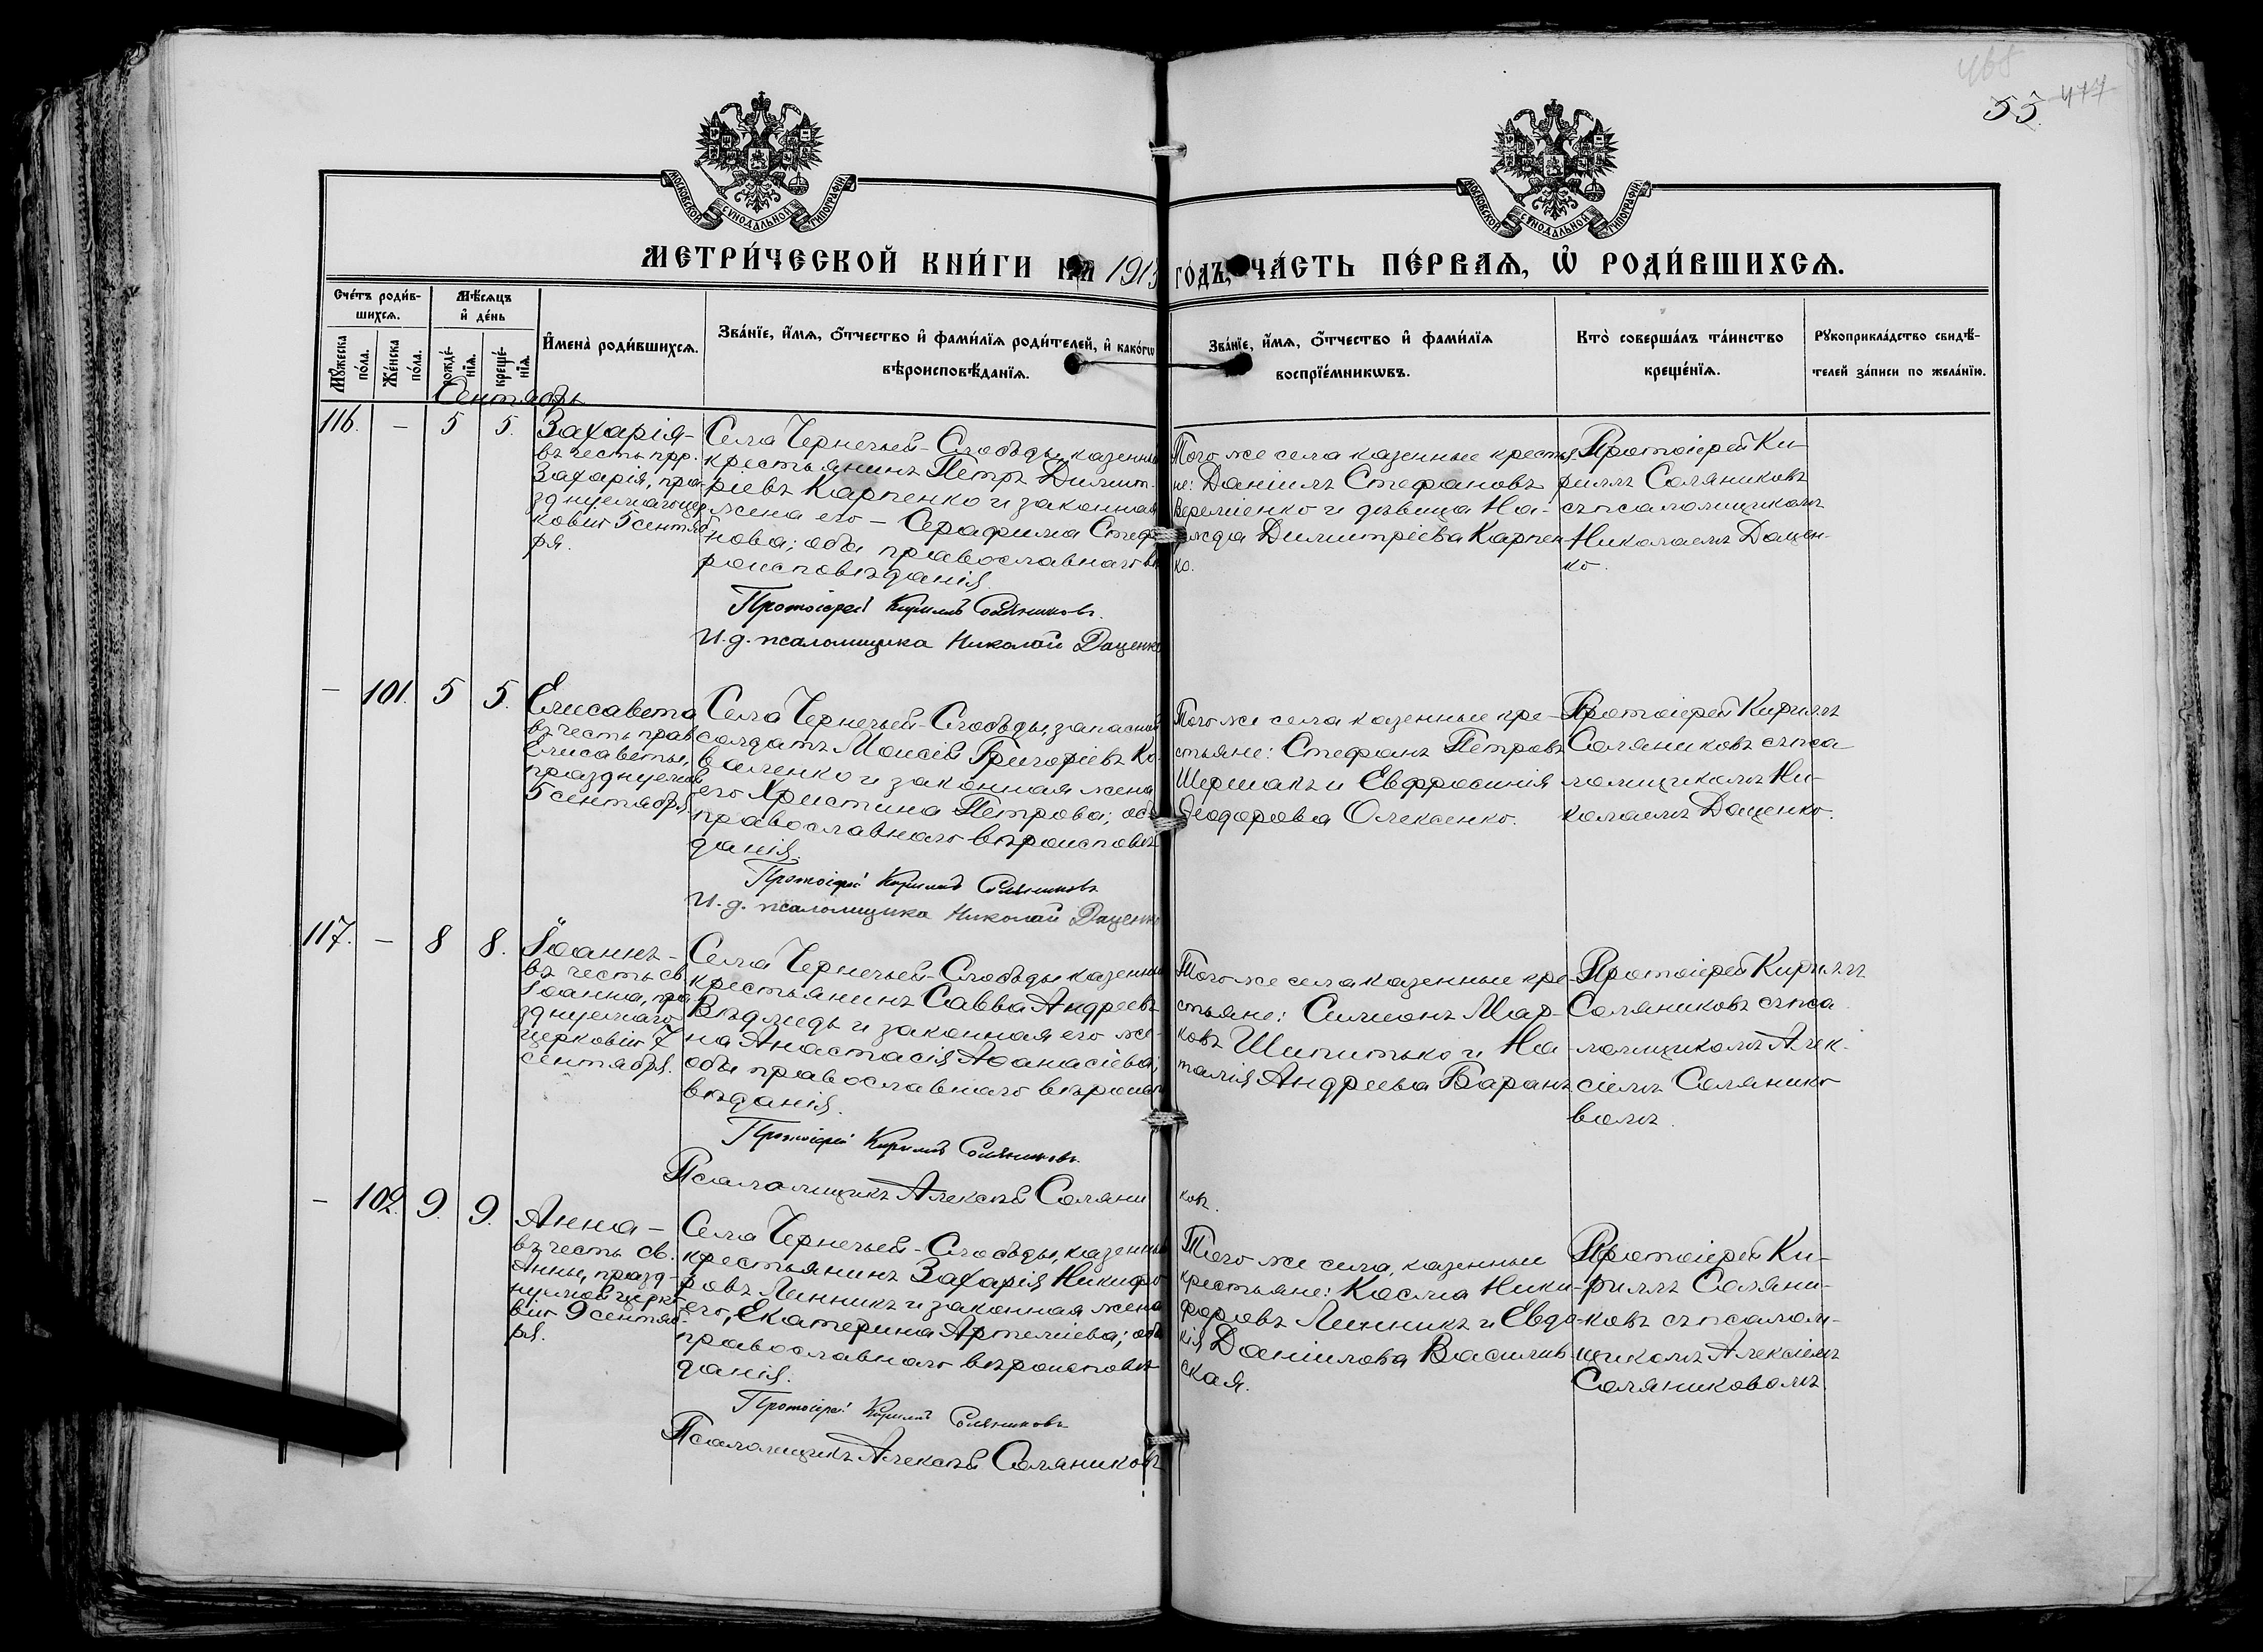 465
55. 477
МОСКОВСКОЙ СѴНОДАЛЬНОЙ ТИПОГРАФІИ
МОСКОВСКОЙ СѴНОДАЛЬНОЙ ТИПОГРАФІИ
МЕТРИ́ЧЕСКОЙ КНИ́ГИ НА 1913 ГО́ДЪ, ЧА́СТЬ ПЕ́РВАѦ, Ѡ҆ РОДИ́ВШИХСѦ.
Сче́тъ роди́в-
шихсѧ.
Мꙋ́жеска
по́ла.
Же́нска
по́ла.
Мѣ́сѧцъ
и҆ де́нь
рожде́-
нїѧ.
креще́-
нїѧ.
И҆мена̀ роди́вшихсѧ.
Зва́нїе, и҆́мѧ, ѻ҆́тчество и҆ фами́лїѧ роди́телей, и҆ како́гѡ
вѣроисповѣ́данїѧ.
Зва́нїе, и҆́мѧ, ѻ҆́тчество и҆ фами́лїѧ
воспрїе́мникѡвъ.
Кто̀ соверша́лъ та́инство
креще́нїѧ.
Рꙋкоприкла́дство свидѣ́-
телей за́писи по жела́нїю.
Сентябрь
116. - 5 5.
Захарія-
въ честь прр.
Захарія, пра-
зднуемаго цер
ковію 5 сентяб
ря.
Села Чернечьей-Слободы, казенный
крестьянинъ Петръ Димит-
ріевъ Карпенко и законная
жена его - Серафима Стефа
нова; оба православнаго вѣ
роисповѣданія.
Протоіерей Кириллъ Соляниковъ.
И. д. псаломщика Николай Даценко
Того же села казенные крестья
не: Даніилъ Стефановъ
Веремiенко и дѣвица На-
жда Димитріева Карпен
ко.
Протоіерей Ки-
риллъ Соляниковъ
съ псаломщикомъ
Николаемъ Дацен-
ко.
- 101. 5 5.
Елисавета
въ честь прав
Елисаветы,
празднуемой
5 сентября.
Села Чернечьей-Слободы, запасный
солдатъ Моисей Григоріевъ Ко-
валенко и законная жена
его Христина Петрова; оба
православнаго вѣроисповѣ
данія.
Протоіерей Кириллъ Соляниковъ
И. д. псаломщика Николай Даценко
Того же села казенные кре-
стьяне: Стефанъ Петровъ
Шершакъ и Евфросинія
Ѳеодорова Олексенко.
Протоіерей Кириллъ
Соляниковъ съ пса-
ломщикомъ Ни-
колаемъ Даценко.
117. - 8 8.
Іоаннъ-
въ честь св.
Іоанна, пра
зднуемаго
церковію 7
сентября.
Села Чернечьей-Слободы казенный
крестьянинъ Савва Андреевъ
Вѣдмедь и законная его же-
на Анастасія Аѳанасіева;
оба православнаго вѣроиспо
вѣданія.
Протоіерей Кириллъ Соляниковъ.
Псаломщикъ Алексѣй Соляни
ковъ.
Того же села казенные кре-
стьяне: Симеонъ Мар-
ковъ Шипитько и На
талія Андреева Баранъ
Протоіерей Кириллъ
Соляниковъ съ пса
ломщикомъ Алек-
сіемъ Соляник-
вомъ.
- 102. 9. 9.
Анна-
въ честь св.
Анны, празд-
нуемой церко
вію 9 сентяб-
ря.
Села Чернечьей-Слободы, казенный
крестьянинъ Захарія Никифо
ровъ Линникъ и законная жена
его, Екатерина Артеміева; оба
православнаго вѣроисповѣ
данія.
Протоіерей Кириллъ Соляниковъ
Псаломщикъ Алексѣй Соляниковъ
Того же села, казенные
крестьяне: Косма Ники-
форовъ Линникъ и Евдо-
кія Даніилова Василев-
ская.
Протоіерей Ки-
риллъ Соляни-
ковъ съ псалом-
щикомъ Алексіемъ
Соляниковомъ.